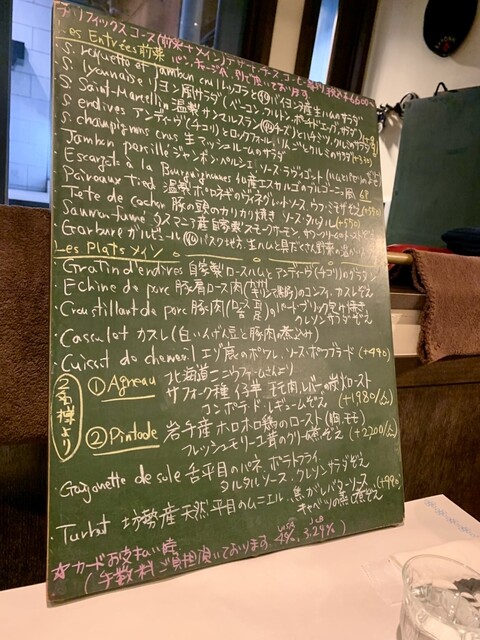 プリフィックスコース(前菜+メイン)デザート
Les Entrées前菜
S. roquette et Jambon cru
S lyonnaise リヨン風サラダ(ベーコン、クルトン、ポーチドエッグ、サラダ)
S Saint-Marcellin 温製サンマルスラン
S endives アンディーヴ(チコリ)とロックフォール、リンゴとクルミのサラダ(+330)
S. champignons crus 生マッシュルームのサラダ
Jambon persillé ジャンボン・ペルシエ ソース・ラヴィゴット
Escargot à la Bourguignonnes エスカルゴのブルゴーニュ風 6P
Poireaux tied 温製ポロネギのヴィネグレットソース ウフ・ミモザぞえ(+550)
Tete de cochon 豚の頭のカリカリ焼き ソース・タルタル(+550)
Saumon fumé タスマニア産自家製スモークサーモン
Garbure ガルビュール バスク地方 生ハムと具だくさん野菜の
Les Plats メイン
Gratin d'endives 自家製ロースハムとアンディーヴ(チコリ)のグラタン
Echine de porc 豚肩ロース肉のコンフィ、カスレぞえ
Croustillant de porc 豚肉のパートブリック包み焼き
クレソンサラダぞえ
Cassoulet カスレ(白いんげん豆と豚肉の煮込み)
Cuissot de chevreuil エゾ鹿のポワレ、ソース・ポワヴラード(+990)
2名様より
① Agneau 北海道ニニウファームさんより
サフォーク種 仔羊 モモ肉、レバーの炭火ロースト
コンポテ・ド・レギュームぞえ(+1980/人)
② Pintade 岩手産ホロホロ鶏のロースト(胸、モモ)
フレッシュモリーユ茸のクリーム煮ぞえ(+2200/人)
Goujonette de sole 舌平目のパネ、ポテトフライ
タルタルソース、クレソンサラダぞえ
Turbot 坊勢産 天然平目のムニエル 焦がしバターソース(+990)
キャベツの煮込ぞえ
☆カードお支払い時 VISA 4%、JCB 3.24%
(手数料ご負担頂いております。)